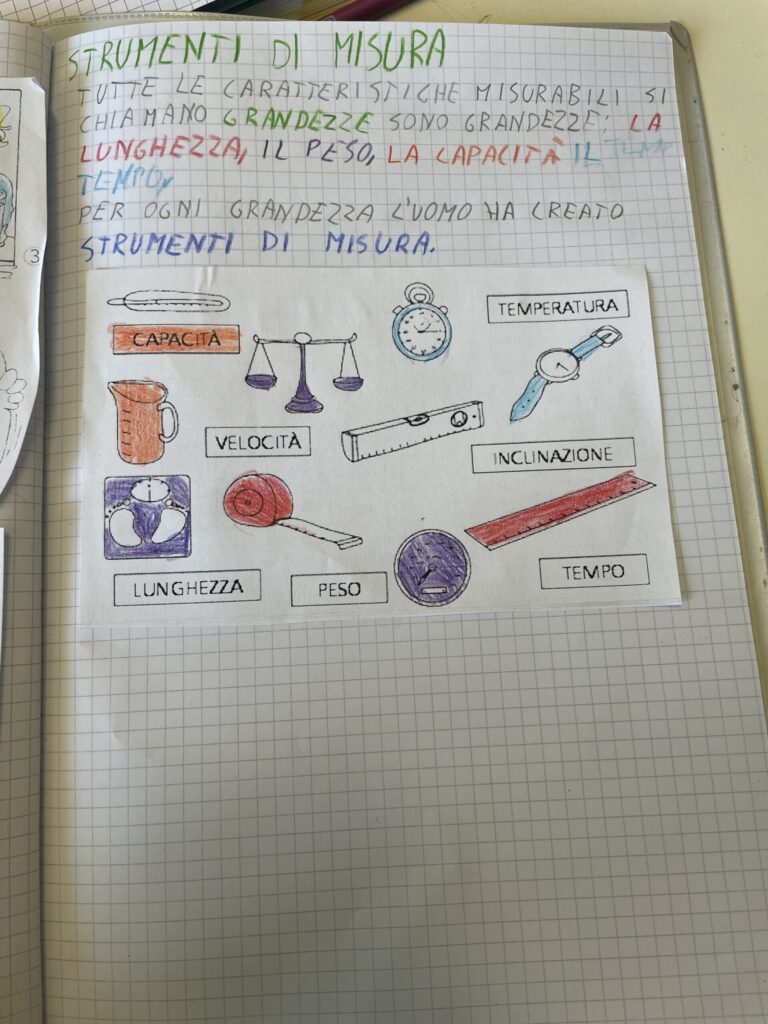 STRUMENTI DI MISURA
TUTTE LE CARATTERISTICHE MISURABILI SI
CHIAMANO GRANDEZZE SONO GRANDEZZE: LA
LUNGHEZZA, IL PESO, LA CAPACITÀ IL
TEMPO,
PER OGNI GRANDEZZA L'UOMO HA CREATO
STRUMENTI DI MISURA.
TEMPERATURA
CAPACITÀ
VELOCITÀ
INCLINAZIONE
LUNGHEZZA
PESO
TEMPO
3